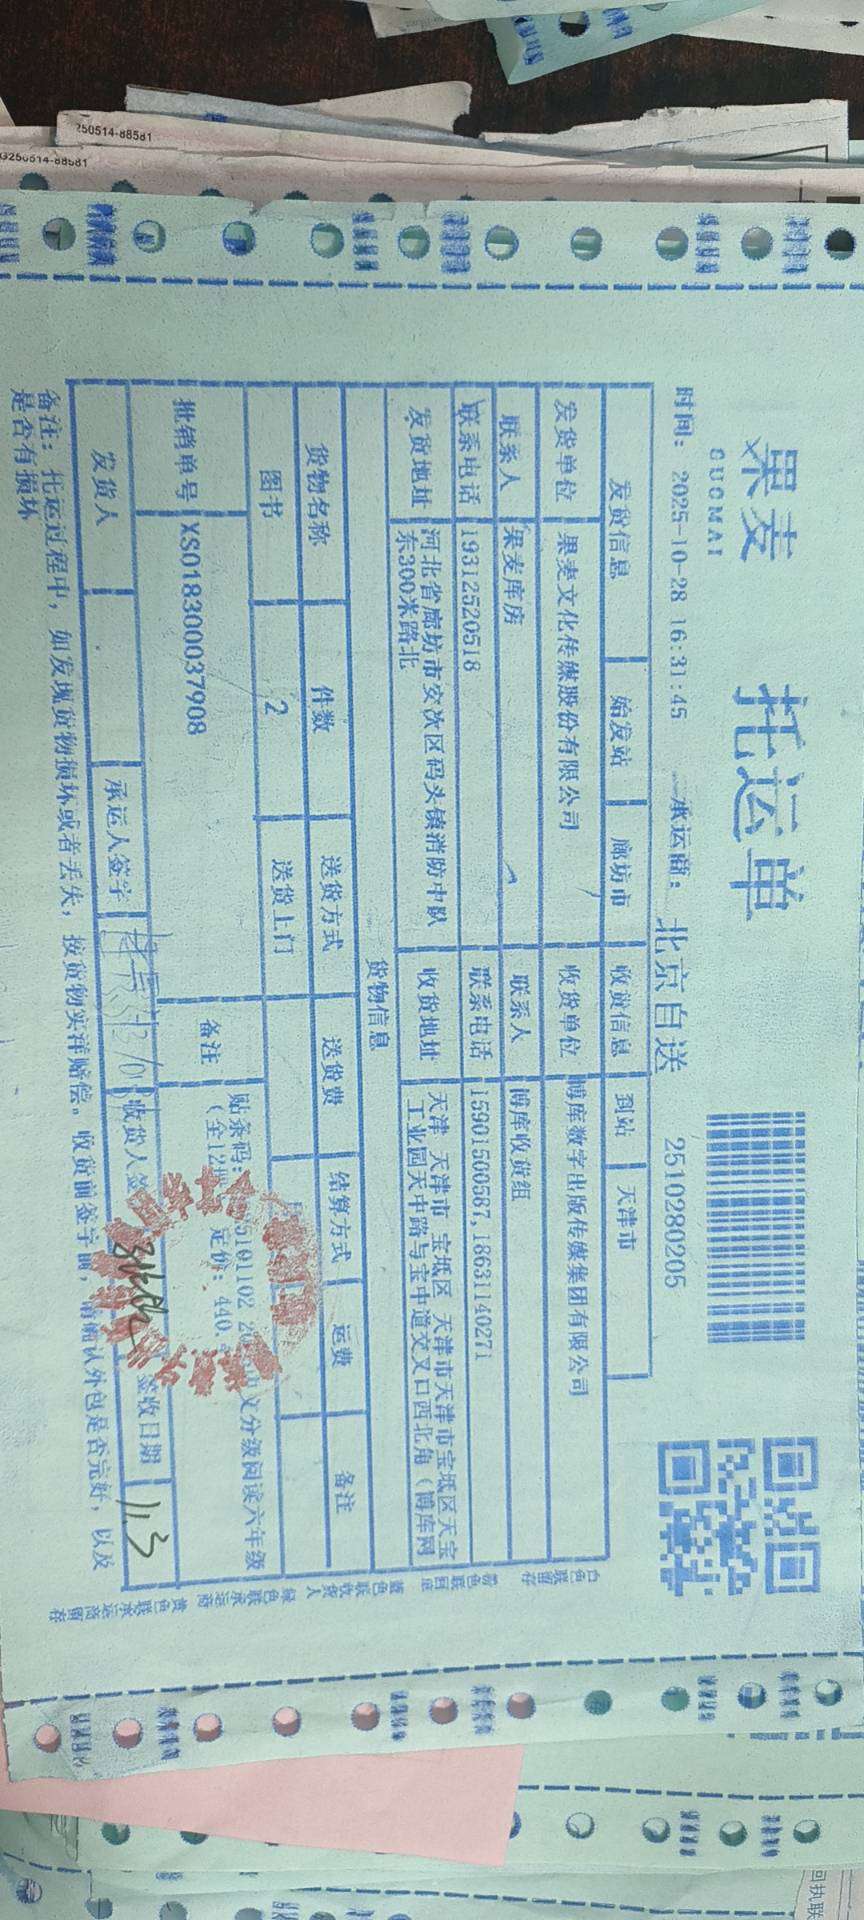 250514-88581
果麦
GUOMAI
托运单
时间: 2025-10-28 16:31:45
承运商: 北京自送
2510280205
发货信息 始发站 廊坊市 收货信息 到站 天津市
发货单位 果麦文化传媒股份有限公司 收货单位 博库数字出版传媒集团有限公司
联系人 果麦库房 联系人 博库收货组
联系电话 19312520518 联系电话 15901500587,18631140271
发货地址 河北省廊坊市安次区码头镇消防中队
东300米路北
收货地址 天津 天津市 宝坻区 天津市天津市宝坻区天宝
工业园天中路与宝中道交叉口西北角（博库网
货物信息
货物名称 件数 送货方式 送货费 结算方式 运费 备注
图书 2 送货上门
批销单号 XS018300037908 备注
贴条码:
文分级阅读六年级
定价: 440.
发货人 承运人签字 收货人签 签收日期 11.3
备注: 托运过程中, 如发现货物损坏或者丢失, 按货物实洋赔偿。收货前签字前, 请确认外包是否完好, 以及
是否有损坏
白色联留存
粉色联回底
蓝色联收货人
绿色联承运商
黄色联承运商留存
回执联